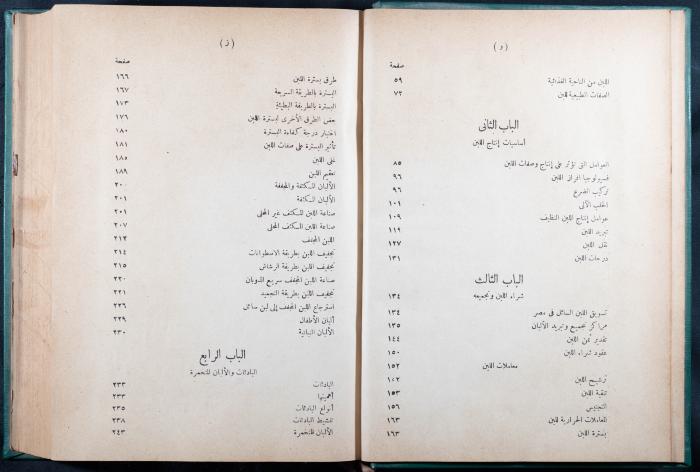 (و)
صفحة
اللبن من الناحية الغذائية ٥٩
الصفات الطبيعية للبن ٧٢
الباب الثانى
أساسيات إنتاج اللبن
العوامل التى تؤثر على إنتاج وصفات اللبن ٨٥
فسيولوجيا افراز اللبن ٩٦
تركيب الضرع ٩٦
الحلب الآلى ١٠١
عوامل إنتاج اللبن النظيف ١٠٩
تبريد اللبن ١١٩
نقل اللبن ١٢٧
درجات اللبن ١٣١
الباب الثالث
شراء اللبن وتجميعه ١٣٤
تسويق اللبن السائل فى مصر ١٣٤
مراكز تجميع وتبريد الألبان ١٣٥
تقدير ثمن اللبن ١٤٤
عقود شراء اللبن ١٥٠
معاملات اللبن ١٥٢
ترشيح اللبن ١٥٢
تنقية اللبن ١٥٣
التجنيس ١٥٦
المعاملات الحرارية للبن ١٦٣
بسترة اللبن ١٦٣
(ز)
صفحة
طرق بسترة اللبن ١٦٦
البسترة بالطريقة السريعة ١٦٧
البسترة بالطريقة البطيئة ١٧٣
بعض الطرق الأخرى لبسترة اللبن ١٧٦
اختبار درجة كفاءة البسترة ١٨٠
تأثير البسترة على صفات اللبن ١٨١
غلى اللبن ١٨٥
تعقيم اللبن ١٨٩
الألبان المكثفة والمجففة ٢٠٠
الألبان المكثفة ٢٠١
صناعة اللبن المكثف غير المحلى ٢٠١
صناعة اللبن المكثف المحلى ٢٠٧
اللبن المجفف ٢١٢
تجفيف اللبن بطريقة الاسطوانات ٢١٤
تجفيف اللبن بطريقة الرشاش ٢١٥
صناعة اللبن المجفف سريع الذوبان ٢٢٠
تجفيف اللبن بطريقة التجميد ٢٢١
استرجاع اللبن المجفف إلى لبن سائل ٢٢٦
ألبان الأطفال ٢٢٩
الألبان النباتية ٢٣٠
الباب الرابع
البادئات والألبان المتخمرة
البادئات ٢٣٣
أهميتها ٢٣٣
أنواع البادئات ٢٣٥
تنشيط البادئات ٢٣٨
الألبان المتخمرة ٢٤٣